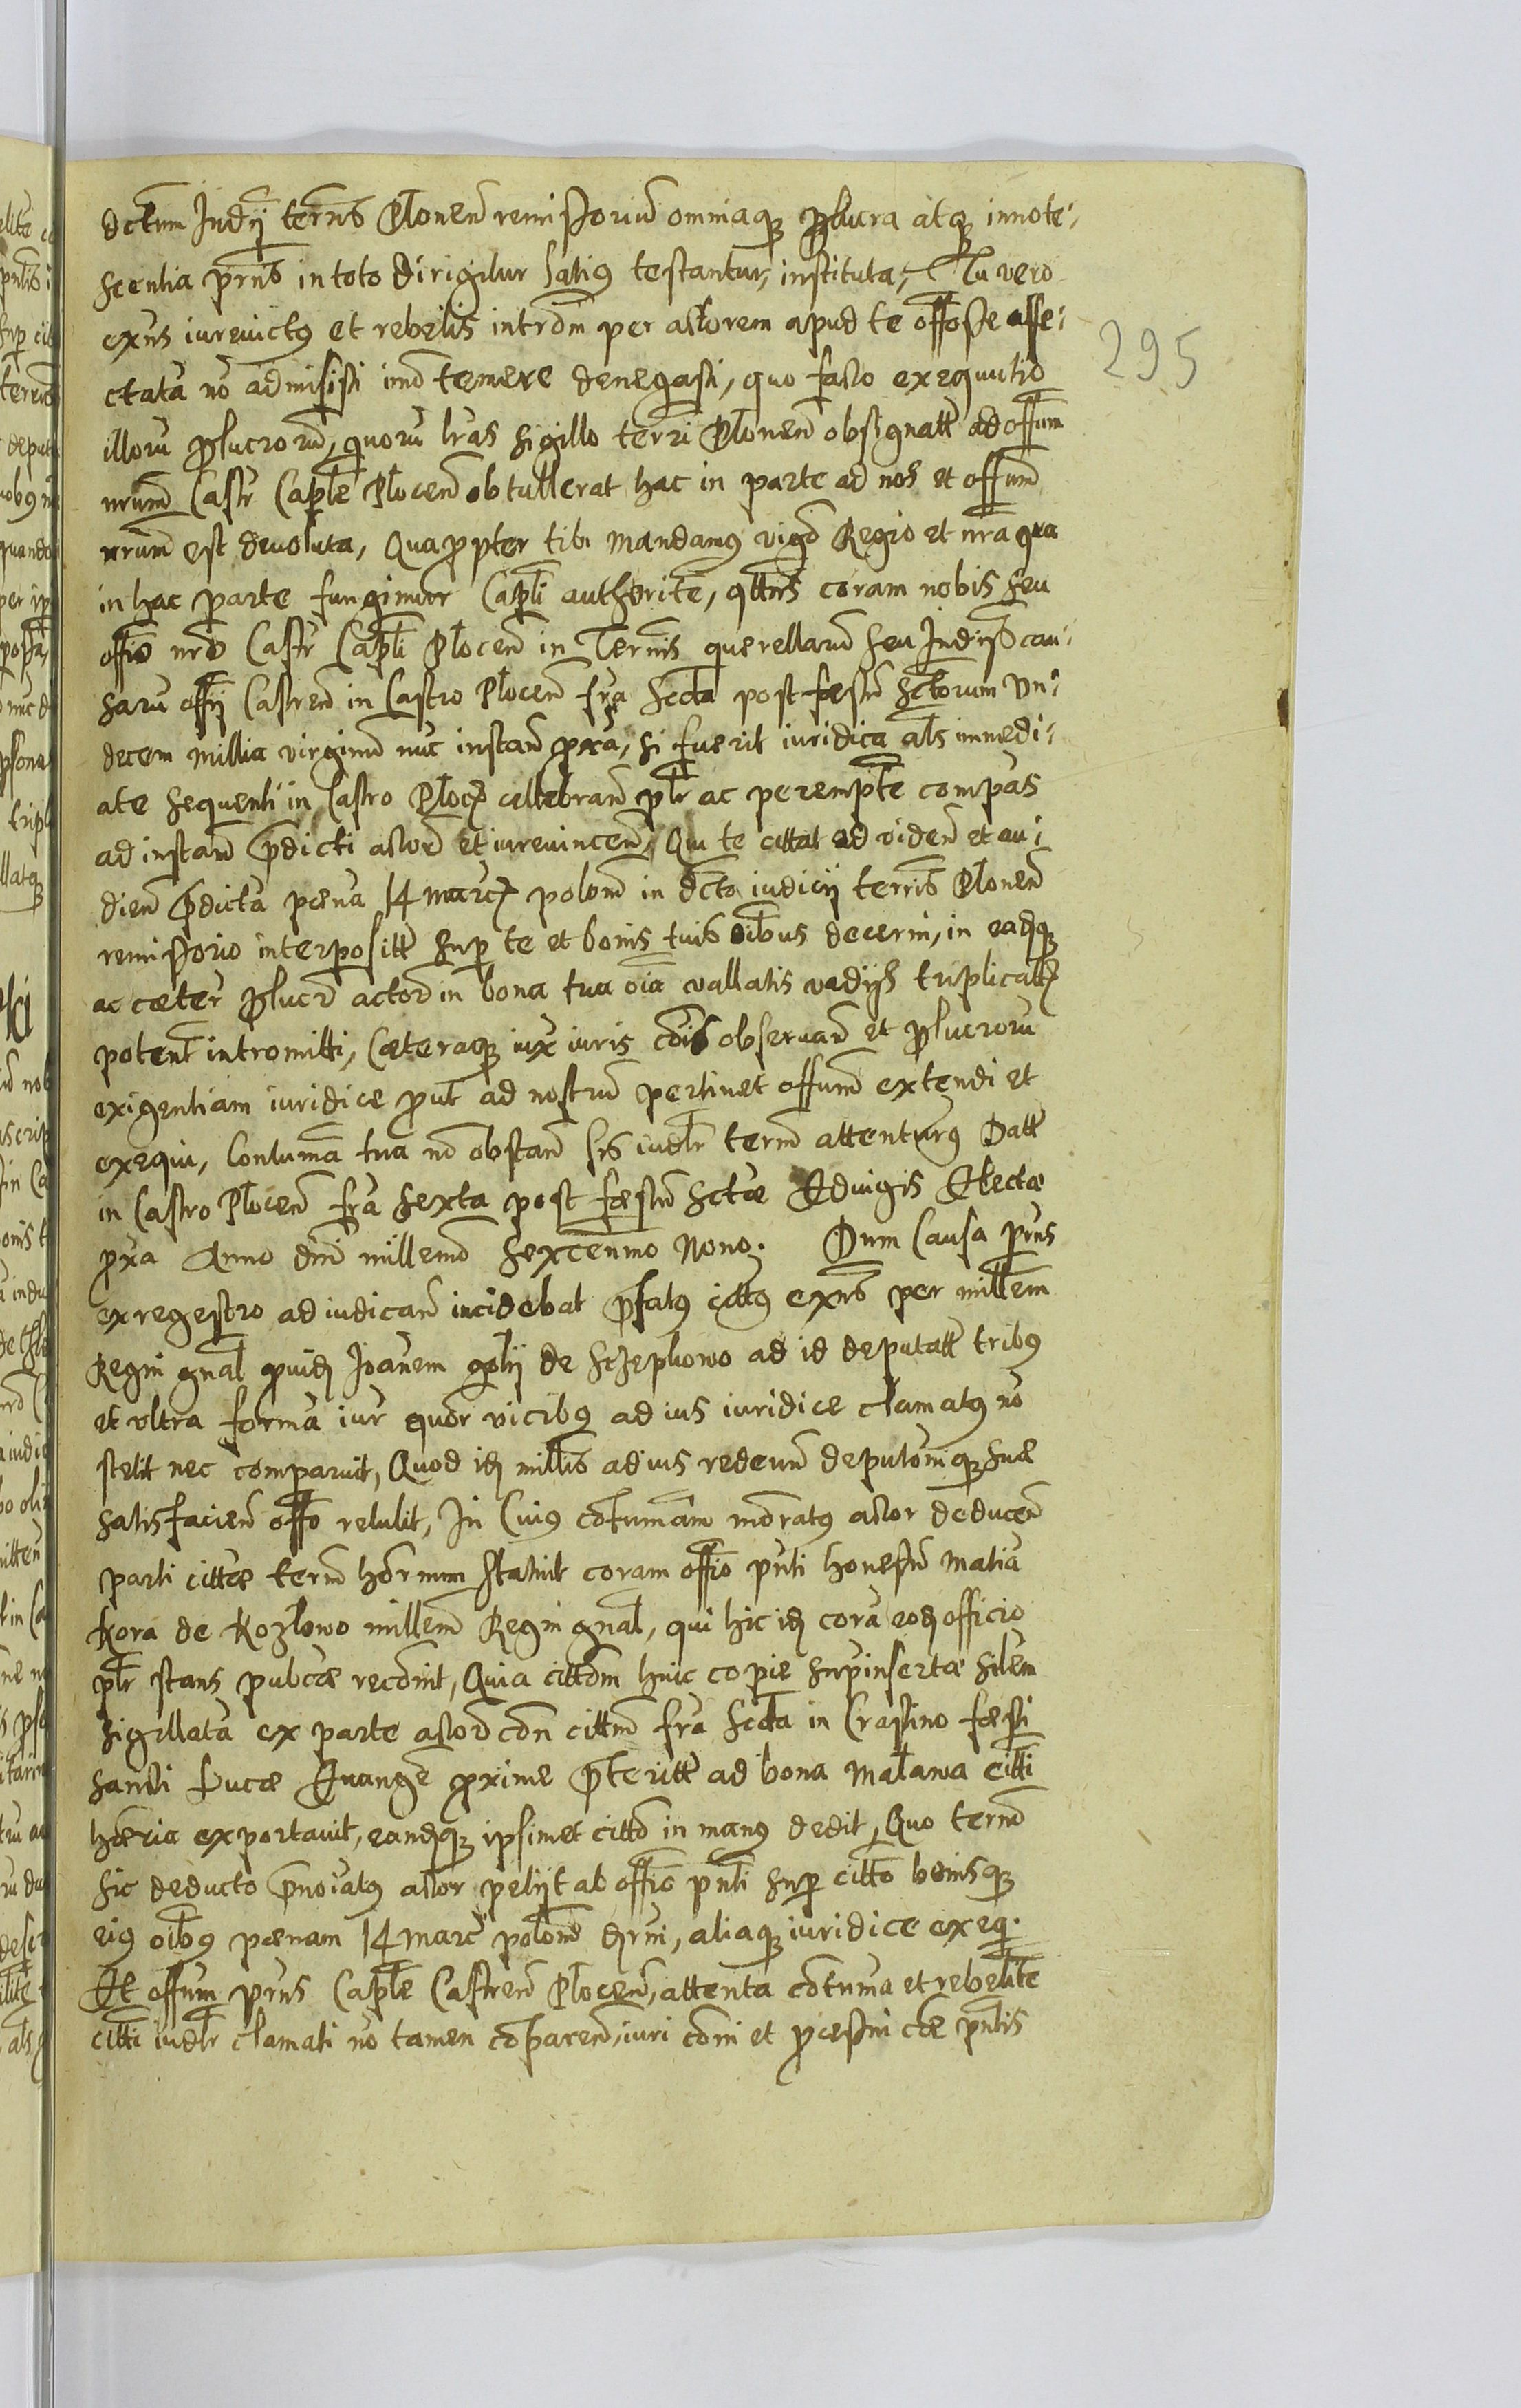 dctum Judÿ terrns Płonen remissorium omniaq perlucra atq innote-
scentia prns in toto dirigitur latius testantur, instituta, Tu vero
exns iurevictus et rebelis intromn per actorem apud te offose affe-
ctata no admisisti imo temere denegasti, quo facto exequutio
illoru perlucroru, quoru lras sigillo terri Płonen obsignatt ad offum
nrum Castr Caple Płocen obtullerat hac in parte ad nos et offum
nrum est devoluta, Quapropter tibi mandamus vigo Regio et nra qua
in hac parte fungimur Capli authorite, qttns coram nobis seu
offio nro Castr Capli Płocen in Termis querellaru seu Indiso cau-
saru offÿ Castren in Castro Płocen fra scda post foestu sctorum Un-
decem millia virginu nuc instan pxa, si fuerit iuridica als immedi-
ate sequenti in Castro Płoc cellebran plr ac perempte compas
ad instan predicti actor et iurevincen, Qui te cittat ad viden et au-
dien predicta poena 14 marc polon in dcto iudicÿ terris Płonen
remissorio interpositt sup te et bonis tuis oibus decerni, in eadq
ac coeter perlucr actor in bona tua oia vallatis vadÿs triplicatt
potent intromitti, Coeteraq iux iuris cois observan et perlucroru
exigentiam iuridice prout ad nostru pertinet offum extendi et
exequi, Contuma tua no obstan sis iudlr term attenturus Datt
in Castro Płocen fra sexta post foestu sctae Edvigis Electae
pxa Anno dni millemo sexcenmo Nono. Dum Causa prns
ex regestro ad iudican incidebat prefatus cittus exns per millem
Regni gnal provid Joanem golÿ de Szczepkowo ad id deputatt tribus
et ultra forma iur quor vicibus ad ius iuridice clamatus no
stetit nec comparuit, Quod id millis ad ius redeun deputoniq suae
satisfacien offo retulit, In Cuius cotumam moratus actor deducen
parti cittae term hornum statuit coram offio pnti honestu Matia
Kora de Kozłowo millem Regni gnal, qui hic id cora eod officio
plr stans publcae reconiut, Quia cittom huic copie supinsertae silem
sigillata ex parte actor con cittm fra scda in Crastino foesti
Sancti Lucae Evange proxime preteritt ad bona Maława citti
haeria exportavit, eandq ipsimet citto in manus dedit, Quo termo
sic deducto prenoiatus actor petÿt ab offio pnti sup citto bonisq
eius oibus poenam 14 marc polon dcerni, aliaq iuridice exeq.
Et offum prns Caple Castren Płocen, attenta cotuma et rebelite
citti iudlr clamati no tamen coparen, iuri coni et processui cae pntis
295